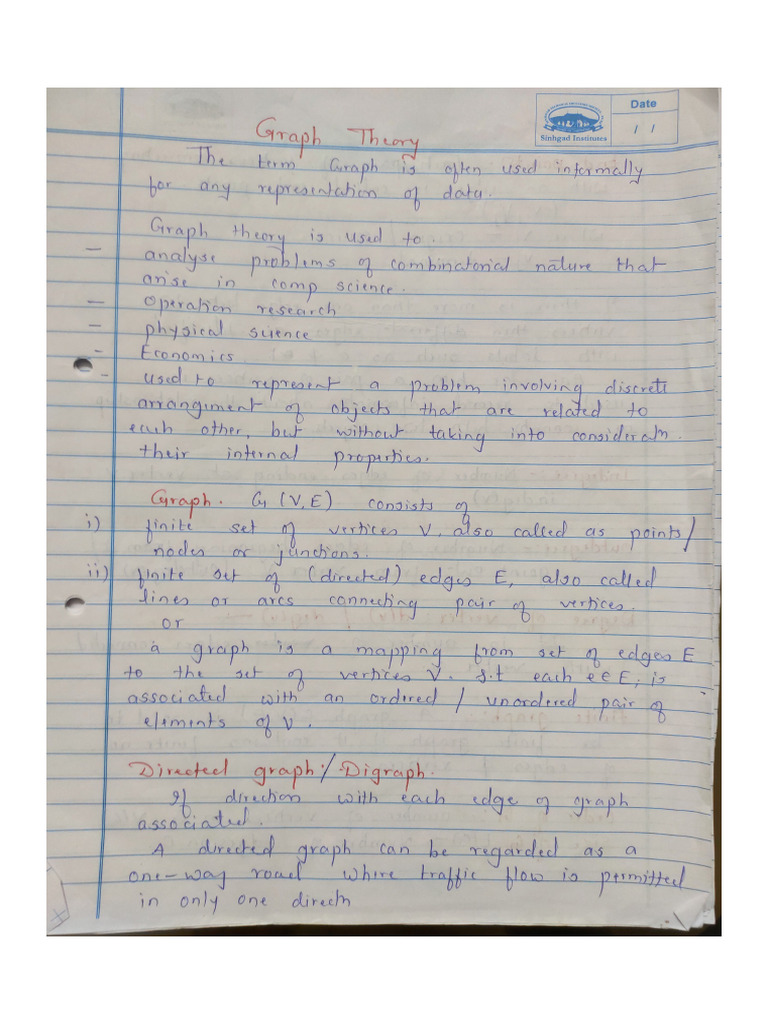 Sinhgad Institutes
Date
/ /
Graph Theory
The term Graph is often used informally
for any representation of data.
Graph theory is used to.
– analyse problems of combinatorial nature that
arise in comp science.
– Operation research
– physical science
– Economics.
used to represent a problem involving discrete
arrangement of objects that are related to
each other, but without taking into consideratn.
their internal properties.
Graph. G (V,E) consists of
i) finite set of vertices V, also called as points/
nodes or junctions.
ii) finite set of (directed) edges E, also called
lines or arcs connecting pair of vertices.
or
a graph is a mapping from set of edges E
to the set of vertices V. s.t each e∈E, is
associated with an ordered / unordered pair of
elements of V.
Directed graph:/ Digraph.
If direction with each edge of graph
associated.
A directed graph can be regarded as a
one-way road where traffic flow is permitted
in only one directn